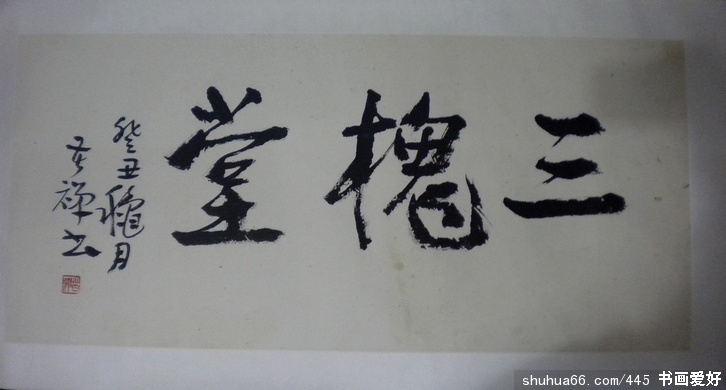 三槐堂
癸丑穐月
吾禅书
shuhua66.com/445 书画爱好